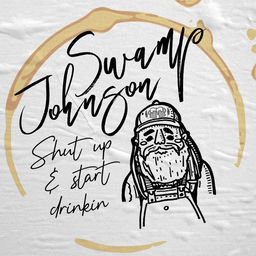 Swamp
Johnson
Shut up
& start
drinkin